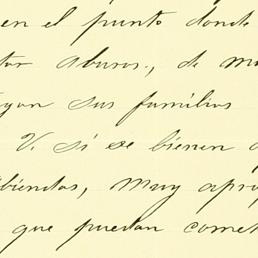 en el punto donde
tar abusos., de m
igan sus familias
V. si se bienen a
ibiendas, muy apro
que puedan comet